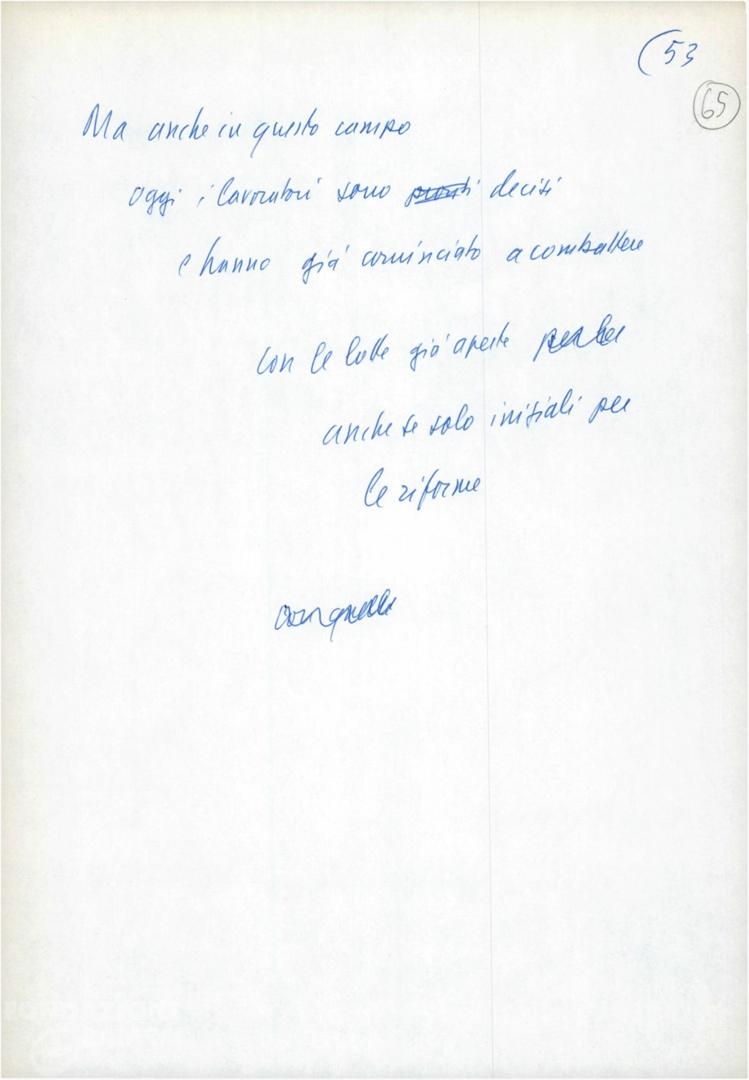 (53
65
Ma anche in questo campo
oggi i lavoratori sono pronti decisi
e hanno già cominciato a combattere
con le lotte già aperte
anche se solo iniziali per
le riforme